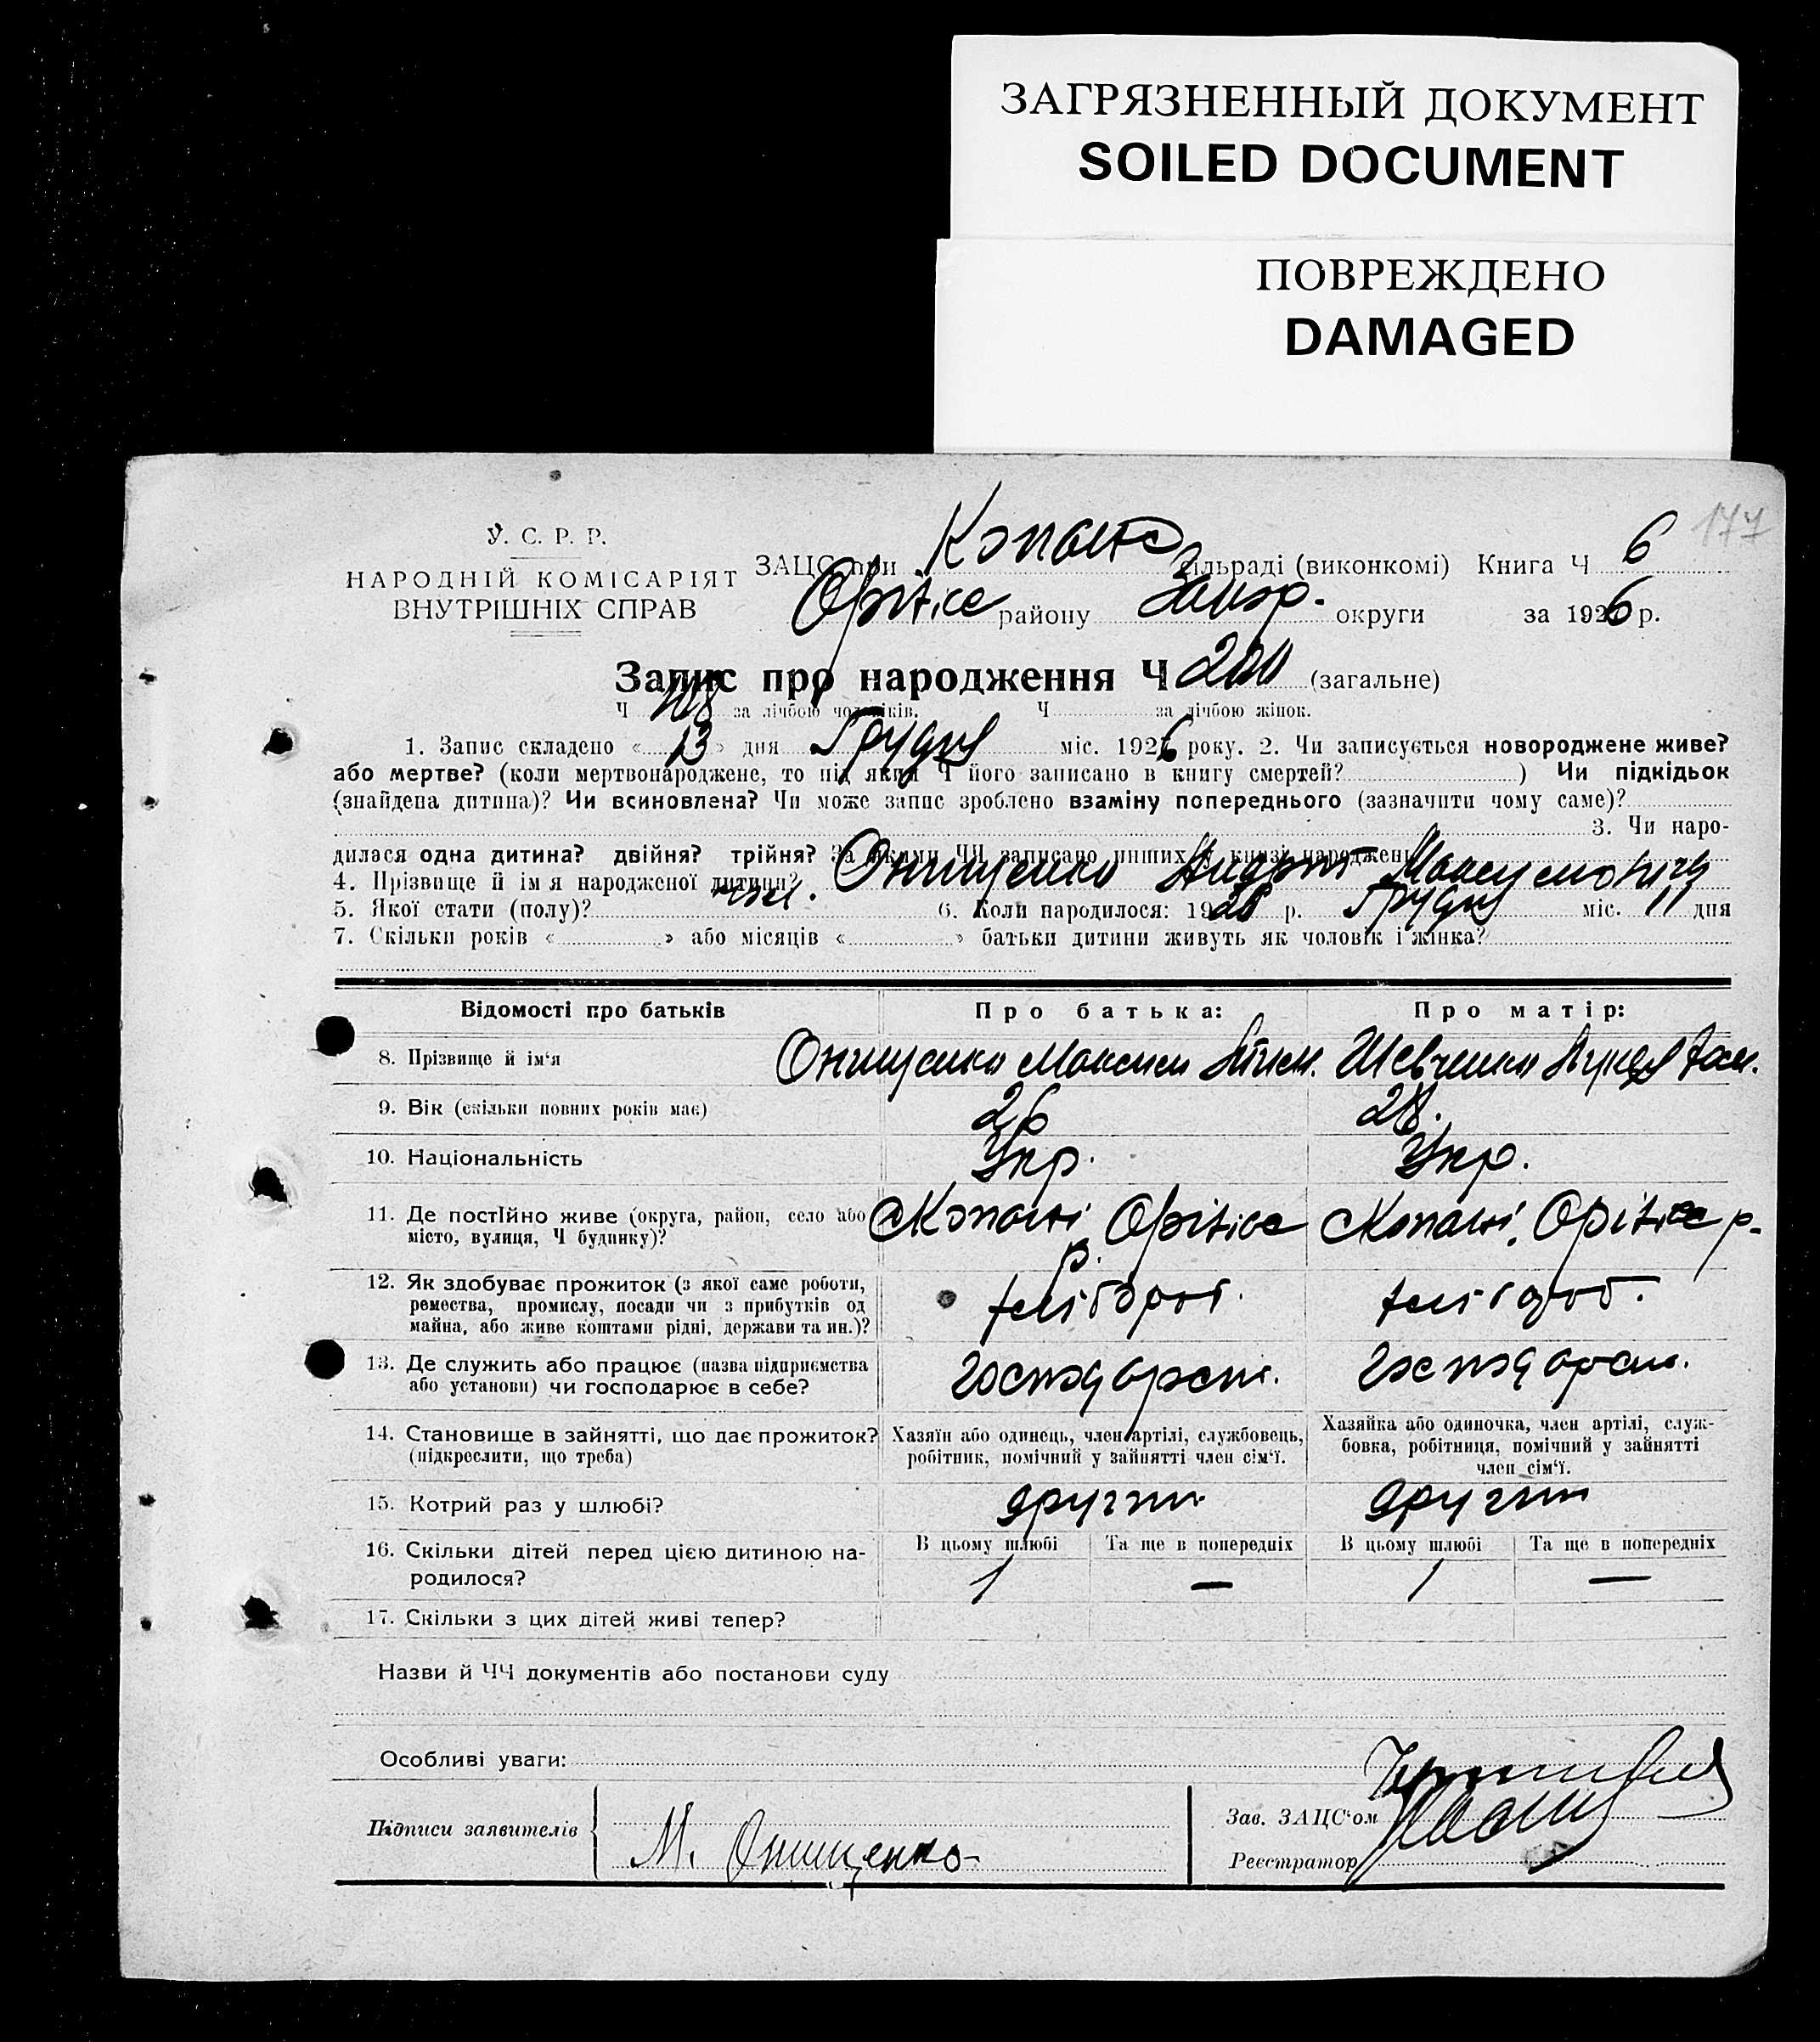 ЗАГРЯЗНЕННЫЙ ДОКУМЕНТ
SOILED DOCUMENT
ПОВРЕЖДЕНО
DAMAGED
177
У. С. Р. Р.
НАРОДНІЙ КОМІСАРІЯТ
ВНУТРІШНІХ СПРАВ
ЗАЦС при сільраді (виконкомі) Книга Ч 6
району округи за 1926 р.
Запис про народження Ч 200 (загальне)
Ч 108 за лічбою чоловіків. Ч за лічбою жінок.
1. Запис складено « 13 » дня Грудня міс. 1926 року. 2. Чи записується новороджене живе?
або мертве? (коли мертвонароджене, то під яким Ч його записано в книгу смертей? ) Чи підкідьок
(знайдена дитина)? Чи всиновлена? Чи може запис зроблено взаміну попереднього (зазначити чому саме)?
3. Чи наро-
дилася одна дитина? двійня? трійня? За якими ЧЧ записано инших у книзі народжень
4. Прізвище й ім'я народженої дитини? Онищенко Андрій Максимович
5. Якої стати (полу)? чол. 6. Коли народилося: 1926 р. Грудня міс. 11 дня
7. Скільки років « » або місяців « » батьки дитини живуть як чоловік і жінка?
Відомості про батьків Про батька: Про матір:
8. Прізвище й ім'я Онищенко Максим Шевченко
9. Вік (скільки повних років має) 26 28.
10. Національність Укр. Укр.
11. Де постІйно живе (округа, район, село або
місто, вулиця, Ч будинку)? Копані р. Оріхівс Копані, Оріхівс р.
12. Як здобуває прожиток (з якої саме роботи,
ремества, промислу, посади чи з прибутків од
майна, або живе коштами рідні, держави та ин.)? хлібороб. хлібороб.
13. Де служить або працює (назва підприємства
або установи) чи господарює в себе? господарст. господарст.
14. Становище в зайнятті, що дає прожиток?
(підкреслити, що треба)
Хазяїн або одинець, член артілі, службовець,
робітник, помічний у зайнятті член сім'ї.
Хазяйка або одиночка, член артілі, служ-
бовка, робітниця, помічний у зайнятті
член сім'ї.
15. Котрий раз у шлюбі? другий другий
16. Скільки дітей перед цією дитиною на-
родилося?
В цьому шлюбі Та ще в попередніх В цьому шлюбі Та ще в попередніх
1 — 1 —
17. Скільки з цих дітей живі тепер?
Назви й ЧЧ документів або постанови суду
Особливі уваги:
Підписи заявителів М. Онищенко
Зав. ЗАЦС'ом
Реєстратор